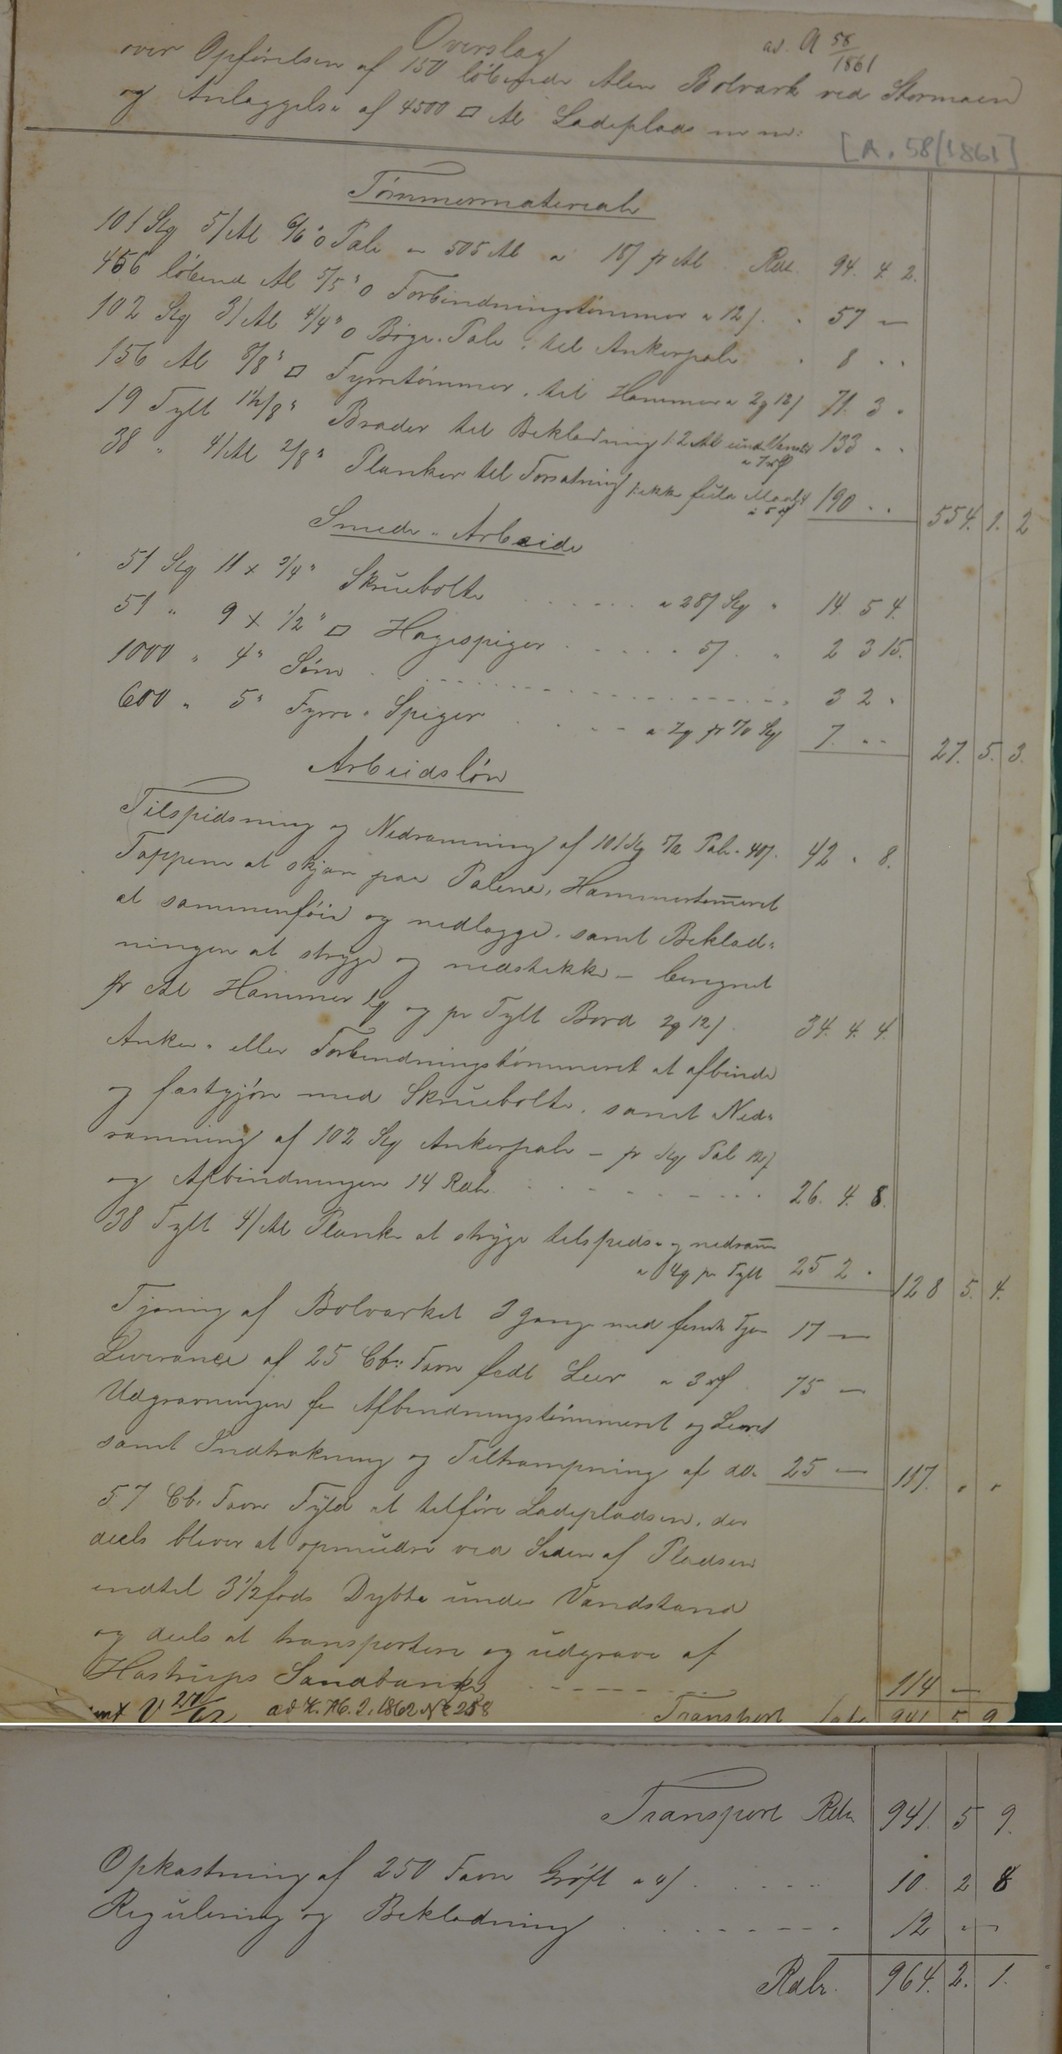 Overslag
ad. A 58/1861
over Opførelsen af 150 løbende Alen Bolværk ved Stormøen
og Anlæggelse af 4500 □ Al Ladeplads m m:
[A. 58/1861]
Tømmermateriale
101 Stg 5/Al 6/6" o Pæle = 505 Al a 18/ pr Al Rdl. 94. 4. 2.
456 løbend Al 5/5" o Forbindningstømmer a 12/. " 57 —
102 Stg 3/Al 4/4" o Bøge-Pæle, til Ankerpæle " 8 " "
156 Al 8/8" □ Fyrretømmer, til Hammer a 2 12/ 71. 3 "
19 Tylt 1½/8" Brædder til Beklædning 133 " "
38 " 4/Al 2/8" Planker til Forsætning 190 " " 554. 1. 2
Smede-Arbeide
51 Stg 11 x 3/4" Skruebolte a 28/ Stg " 14 5 4.
51 " 9 x 1/2" □ Hagespiger " 5/. " 2 3 15.
1000 " 4" Søm 3 2 "
600 " 5" Fyrre-Spiger 7. " " 27. 5. 3.
Arbeidsløn
Tilspidsning og Nedramning af 101 Stg Pæle a 40/. 42 " 8.
Tappene at skjære paa Pælene, Hammertømmeret
at sammenføie og nedlægge, samt Beklæd-
ningen at stryge og nedstikke — beregnet
pr Al Hammer og pr Tylt Bord 2 12/. 34. 4. 4.
Anker- eller Forbindningstømmeret at afbinde
og fastgjøre med Skruebolte, samt Ned-
ramning af 102 Stg Ankerpæle — pr Stg Pæl 12/
og Afbindningen 14 Rdlr. 26. 4. 8.
38 Tylt 4/Al Planker at stryge tilspidse og nedramme
a 4 pr Tylt 25 2 " 128 5. 4.
Tjæring af Bolværket 2 Gange med Tjære 17 —
Leverance af 25 Cb: Favn fedt Leer a 3 75 —
Udgravningen for Afbindningstømmeret og Leeret
samt Indtrækning og Tiltrampning af do. 25 — 117. " "
57 Cb. Favn Fyld at tilføre Ladepladsen, der
deels bliver at opmudre ved Siden af Pladsen
indtil 3½ fods Dybde under Vandstand
og deels at transportere og udgrave af
Hastrups Sandbanke 114 —
ad K. 1862 N° 258
Transport 941 5 9
Transport Rdlr. 941. 5 9.
Opkastning af 250 Favn Grøft a 4/. 10. 2 8
Regulering og Beklædning 12 " —
Rdlr. 964. 2. 1.